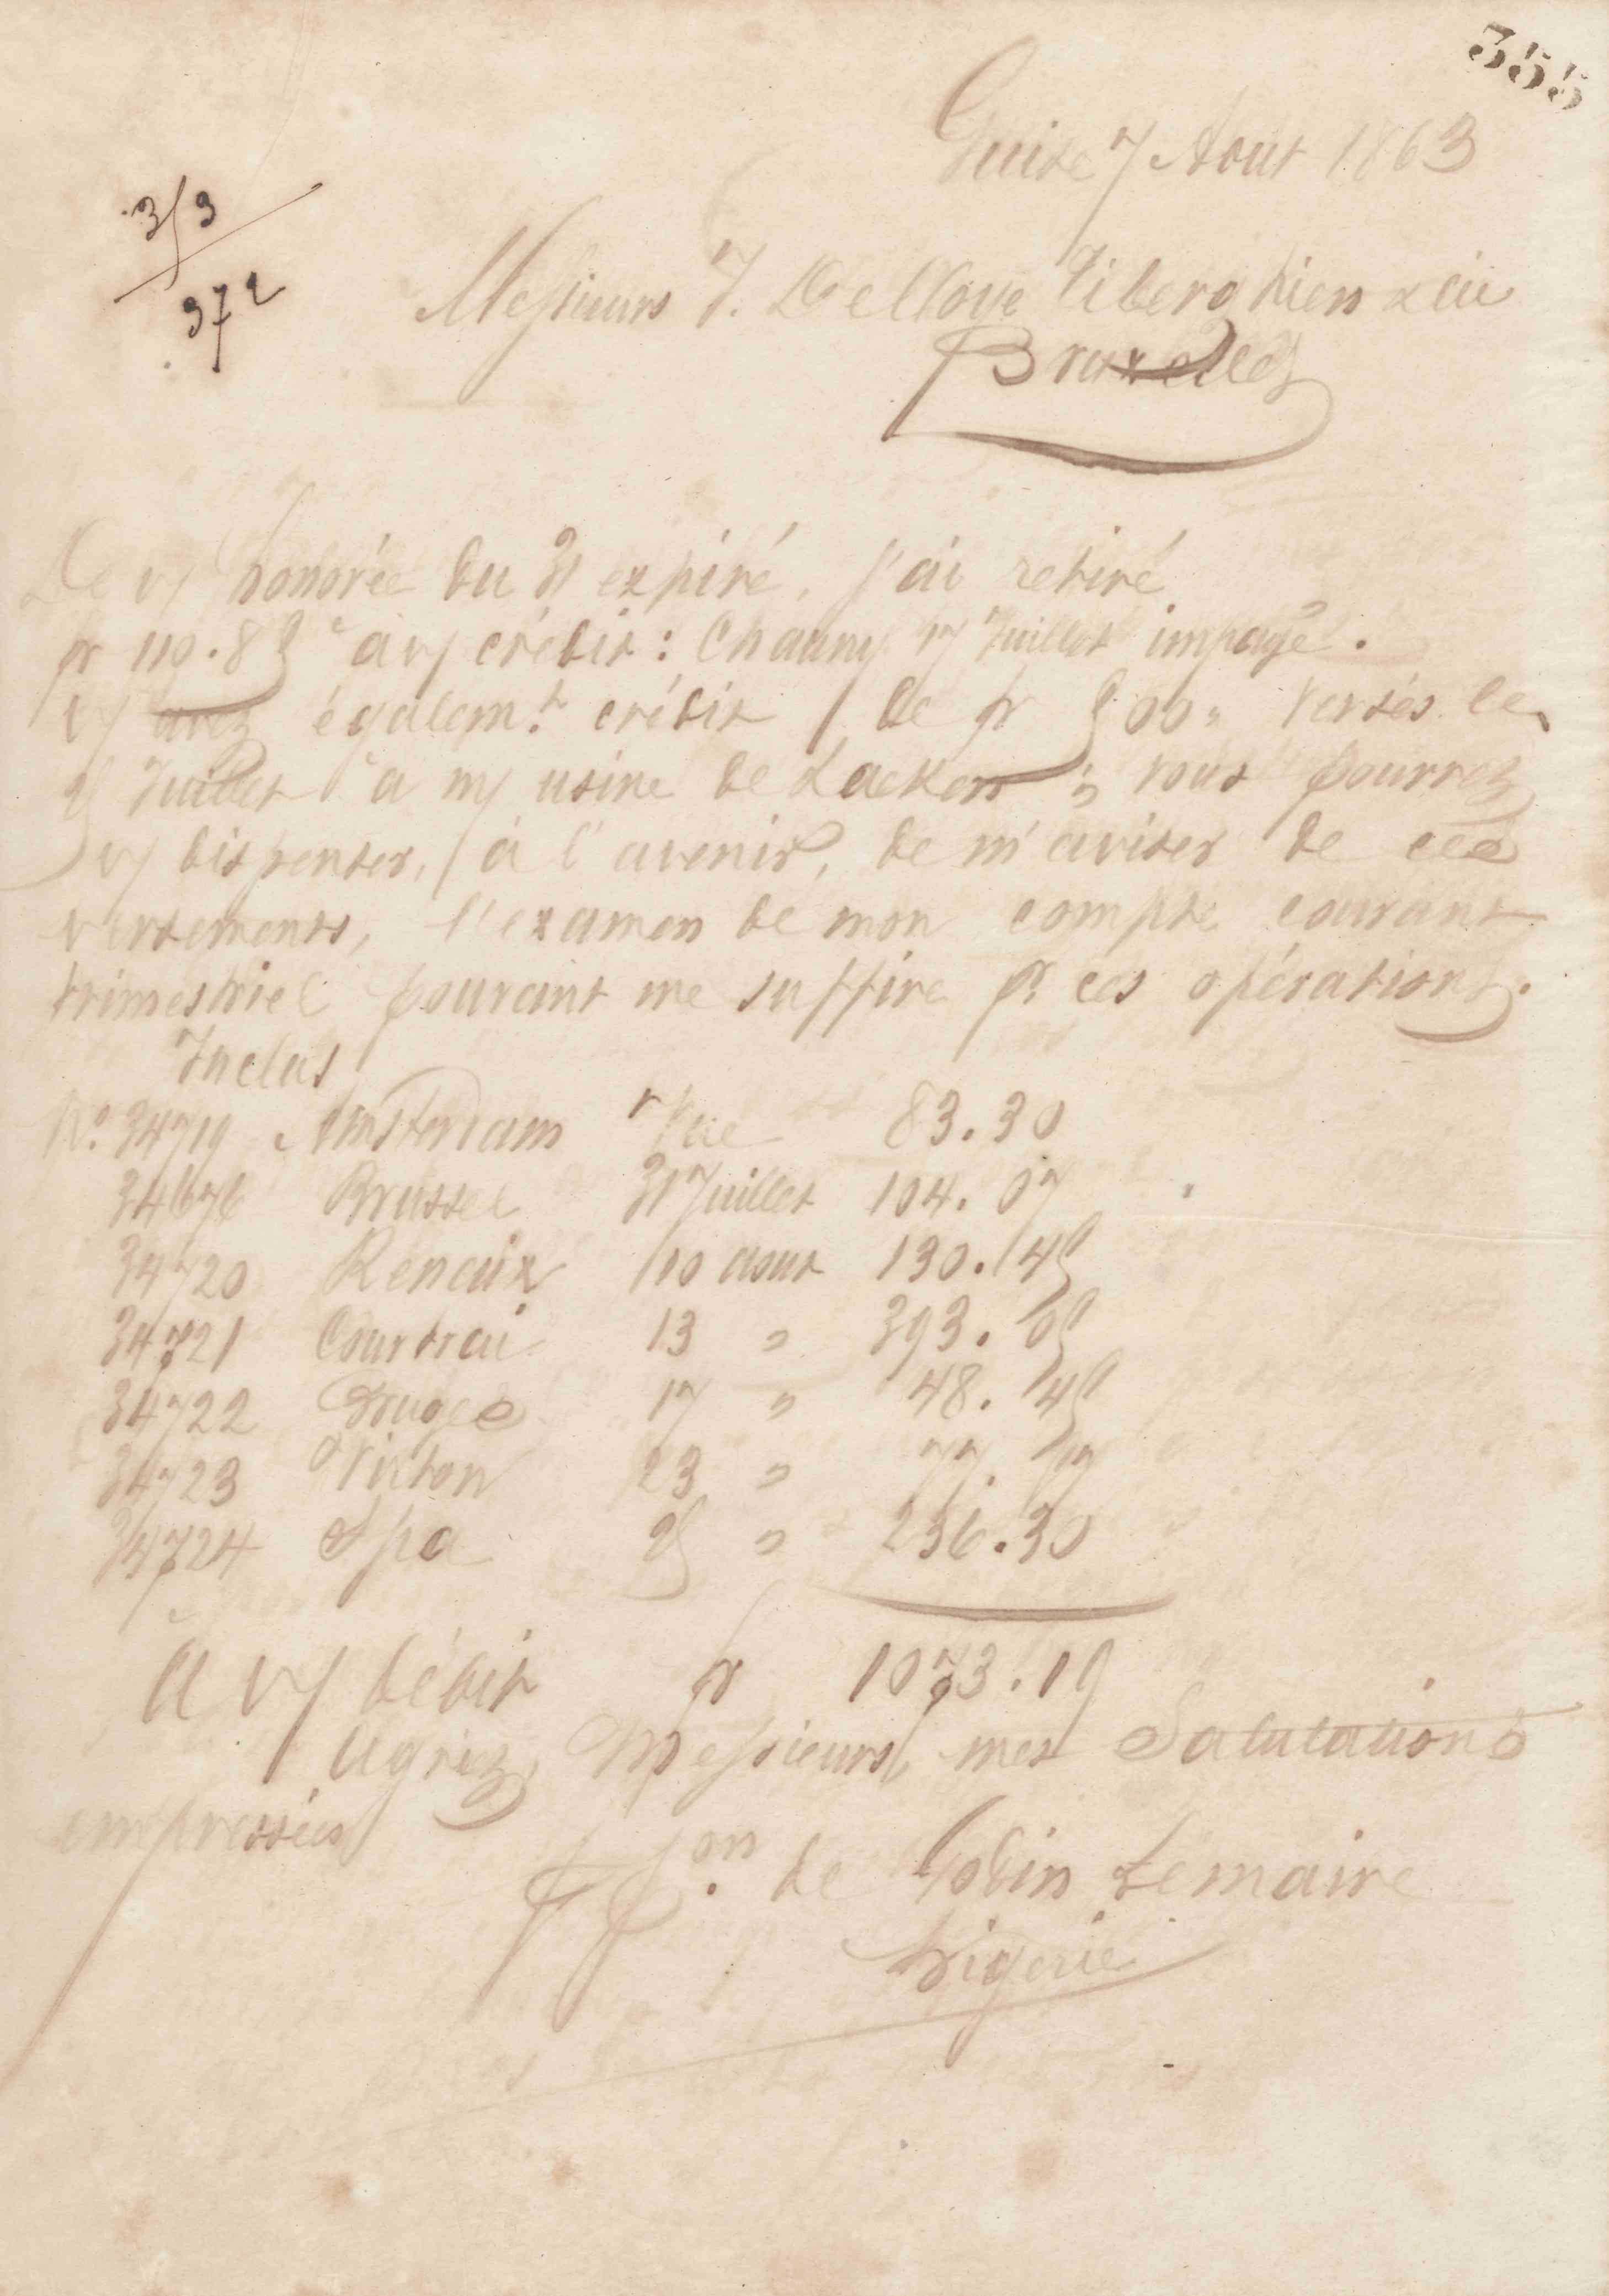 355
Guise 7 Aout 1863
313
372
Messieurs J. Delloye Tiberghien & Cie
Bruxelles
De v/ honorée du 31 expiré, j'ai retiré
fr 119.85 à v/ crédit : Chauny 17 Juillet impayé.
v/ avez égalemt. crédit de fr 500 " versés le
25 Juillet à m/ usine de Laeken ; vous pourrez
v/ dispenser, à l'avenir, de m'aviser de ces
versements, l'examen de mon compte courant
trimestriel pouvant me suffire pr. ces opérations.
Inclus
No. 34719 Amsterdam Vue 83.30
34676 Brussel 31 Juillet 104.07
34720 Renaix 10 aout 130.45
34721 Courtrai 13 " 393.05
34722 Bruges 17 " 48.45
34723 Virton 23 " 77.57
34724 Spa 25 " 236.30
à v/ débit fr 1073.19
Agréez, Messieurs, mes Salutations
empressées
pp.on de Godin Lemaire